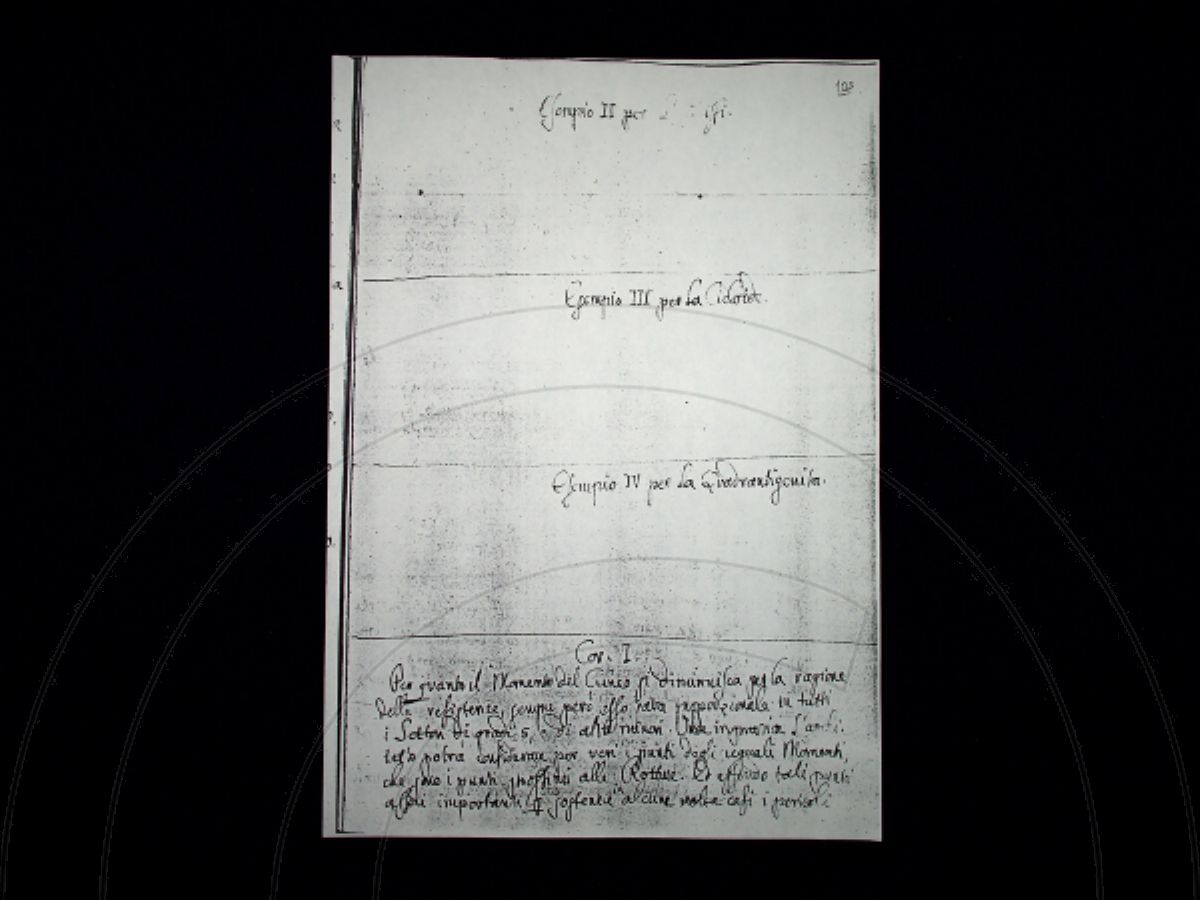 Esempio II per
Esempio III per la Cicloide.
Esempio IV per la Quadrantigenita.
Cor. I.
Per quanto il Momento del Cuneo si diminuisca per la ragione
delle resistenze, sempre però esso sara proporzionale in tutti
i Settori di gradi 5, o di altri minori. Onde in pratica l'archi-
tetto potrà considerare per veri i punti degli uguali Momenti,
che sono i punti prossimi alle Rotture. Ed essendo tali punti
assai importanti sostenere alcune volte casi i pericoli